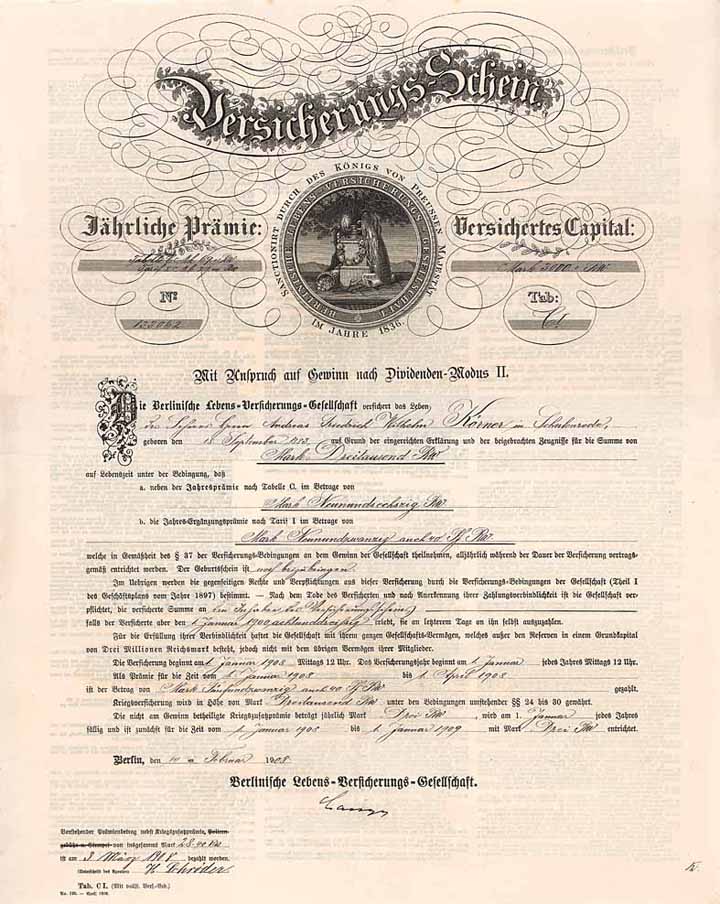 Versicherungs-Schein.
SANCTIONIRT DURCH DES KÖNIGS VON PREUSSEN MAJESTÄT
IM JAHRE 1836.
BERLINISCHE LEBENS VERSICHERUNGS GESELLSCHAFT
Jährliche Prämie:
Versichertes Capital:
Mark 3000
No
133062
Tab:
CI
Mit Anspruch auf Gewinn nach Dividenden-Modus II.
Die Berlinische Lebens-Versicherungs-Gesellschaft versichert das Leben
des Herrn Andreas Friedrich Wilhelm Körner in
geboren den 18. September auf Grund der eingereichten Erklärung und der beigebrachten Zeugnisse für die Summe von
Mark Dreitausend RW
auf Lebenszeit unter der Bedingung, daß
a. neben der Jahresprämie nach Tabelle C. im Betrage von
Mark Neunundsechszig RW
b. die Jahres-Ergänzungsprämie nach Tarif I im Betrage von
Mark auch 40 Pf RW
welche in Gemäßheit des § 37 der Versicherungs-Bedingungen an dem Gewinn der Gesellschaft theilnehmen, alljährlich während der Dauer der Versicherung vertrags-
gemäß entrichtet werden. Der Geburtsschein ist noch beizubringen.
Im Uebrigen werden die gegenseitigen Rechte und Verpflichtungen aus dieser Versicherung durch die Versicherungs-Bedingungen der Gesellschaft (Theil I
des Geschäftsplans vom Jahre 1897) bestimmt. — Nach dem Tode des Versicherten und nach Anerkennung ihrer Zahlungsverbindlichkeit ist die Gesellschaft ver-
pflichtet, die versicherte Summe an den Inhaber des Versicherungsscheins,
falls der Versicherte aber den 1. Januar 1900 achtunddreissig erlebt, sie an letzterem Tage an ihn selbst auszuzahlen.
Für die Erfüllung ihrer Verbindlichkeit haftet die Gesellschaft mit ihrem ganzen Gesellschafts-Vermögen, welches außer den Reserven in einem Grundkapital
von Drei Millionen Reichsmark besteht, jedoch nicht mit dem übrigen Vermögen ihrer Mitglieder.
Die Versicherung beginnt am 1. Januar 1908 Mittags 12 Uhr. Das Versicherungsjahr beginnt am 1. Januar jedes Jahres Mittags 12 Uhr.
Als Prämie für die Zeit vom 1. Januar 1908 bis 1. April 1908
ist der Betrag von Mark Fünfundzwanzig auch 40 Pf RW gezahlt.
Kriegsversicherung wird in Höhe von Mark Dreitausend RW unter den Bedingungen umstehender §§ 24 bis 30 gewährt.
Die nicht am Gewinn betheiligte Kriegszusatzprämie beträgt jährlich Mark Drei RW, wird am 1. Januar jedes Jahres
fällig und ist zunächst für die Zeit vom 1. Januar 1908 bis 1. Januar 1909 mit Mark Drei RW entrichtet.
Berlin, den Februar 1908
Berlinische Lebens-Versicherungs-Gesellschaft.
Vorstehender Prämienbetrag nebst Kriegszusatzprämie, Policen-
gebühr u. Stempel von insgesammt Mark 28.40 RW
ist am 3. März 1908 bezahlt worden.
(Unterschrift des Agenten) H. Schröder
Tab. C I. (Mit vollst. Vers.-Bed.)